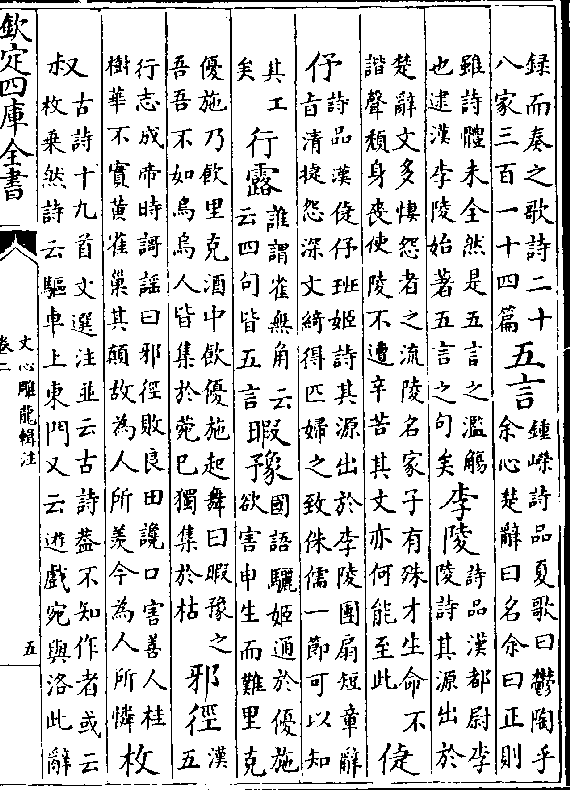 録而奏之歌詩二十
八家三百一十四篇
五言
鍾嶸詩品夏歌曰鬱陶乎
余心楚辭曰名余曰正則
雖詩體未全然是五言之濫觴
也逮漢李陵始著五言之句矣
李陵
詩品漢都尉李
陵詩其源出於
楚辭文多悽怨者之流陵名家子有殊才生命不
諧聲頹身喪使陵不遭辛苦其文亦何能至此
倢
伃
詩品漢倢伃班姬詩其源出於李陵團扇短章辭
旨清捷怨深文綺得匹婦之致侏儒一節可以知
其工
矣
行露
誰謂雀無角云
云四句皆五言
暇豫
國語驪姬通於優施
欲害申生而難里克
優施乃飲里克酒中飲優施起舞曰暇豫之
吾吾不如烏烏人皆集於菀已獨集於枯
邪徑
漢
五
行志成帝時謌謠曰邪徑敗良田讒口害善人桂
樹華不實黃雀巢其顛故為人所羡今為人所憐
枚
叔
古詩十九首文選注並云古詩葢不知作者或云
枚乗然詩云驅車上東門又云遊戲宛與洛此辭
欽定四庫全書
文心雕龍輯注
卷二
五